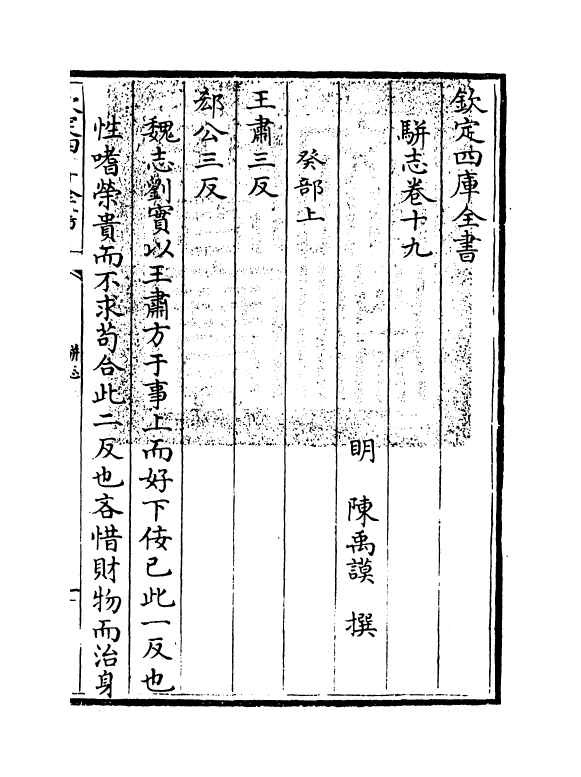 欽定四庫全書
駢志卷十九
明 陳禹謨 撰
癸部上
王肅三反
郄公三反
魏志劉寔以王肅方于事上而好下佞已此一反也
性嗜榮貴而不求苟合此二反也吝惜財物而治身
駢志